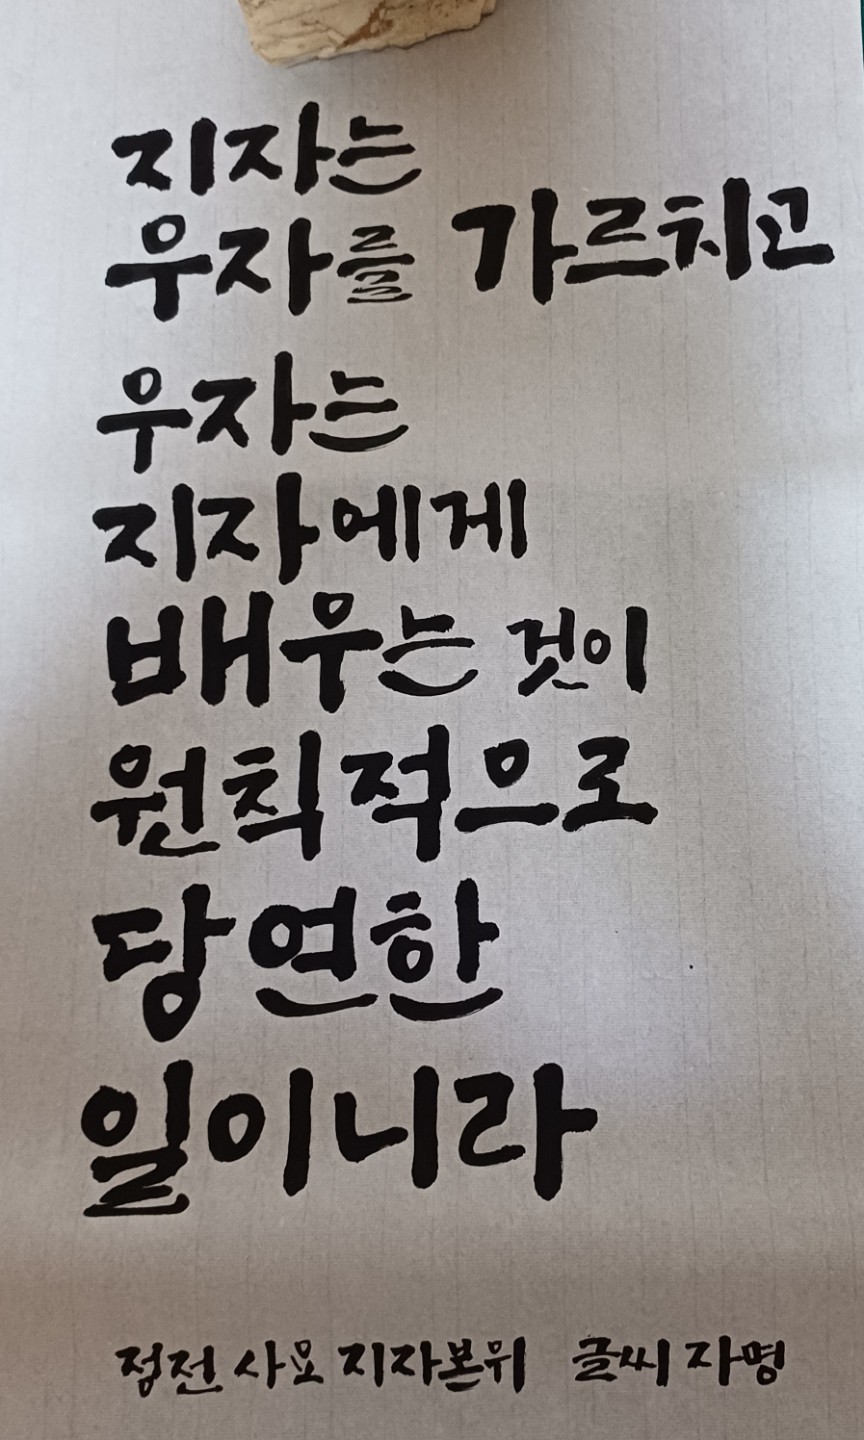 지자는
우자를 가르치고
우자는
지자에게
배우는 것이
원칙적으로
당연한
일이니라
정전 사요 지자본위 글씨 자명